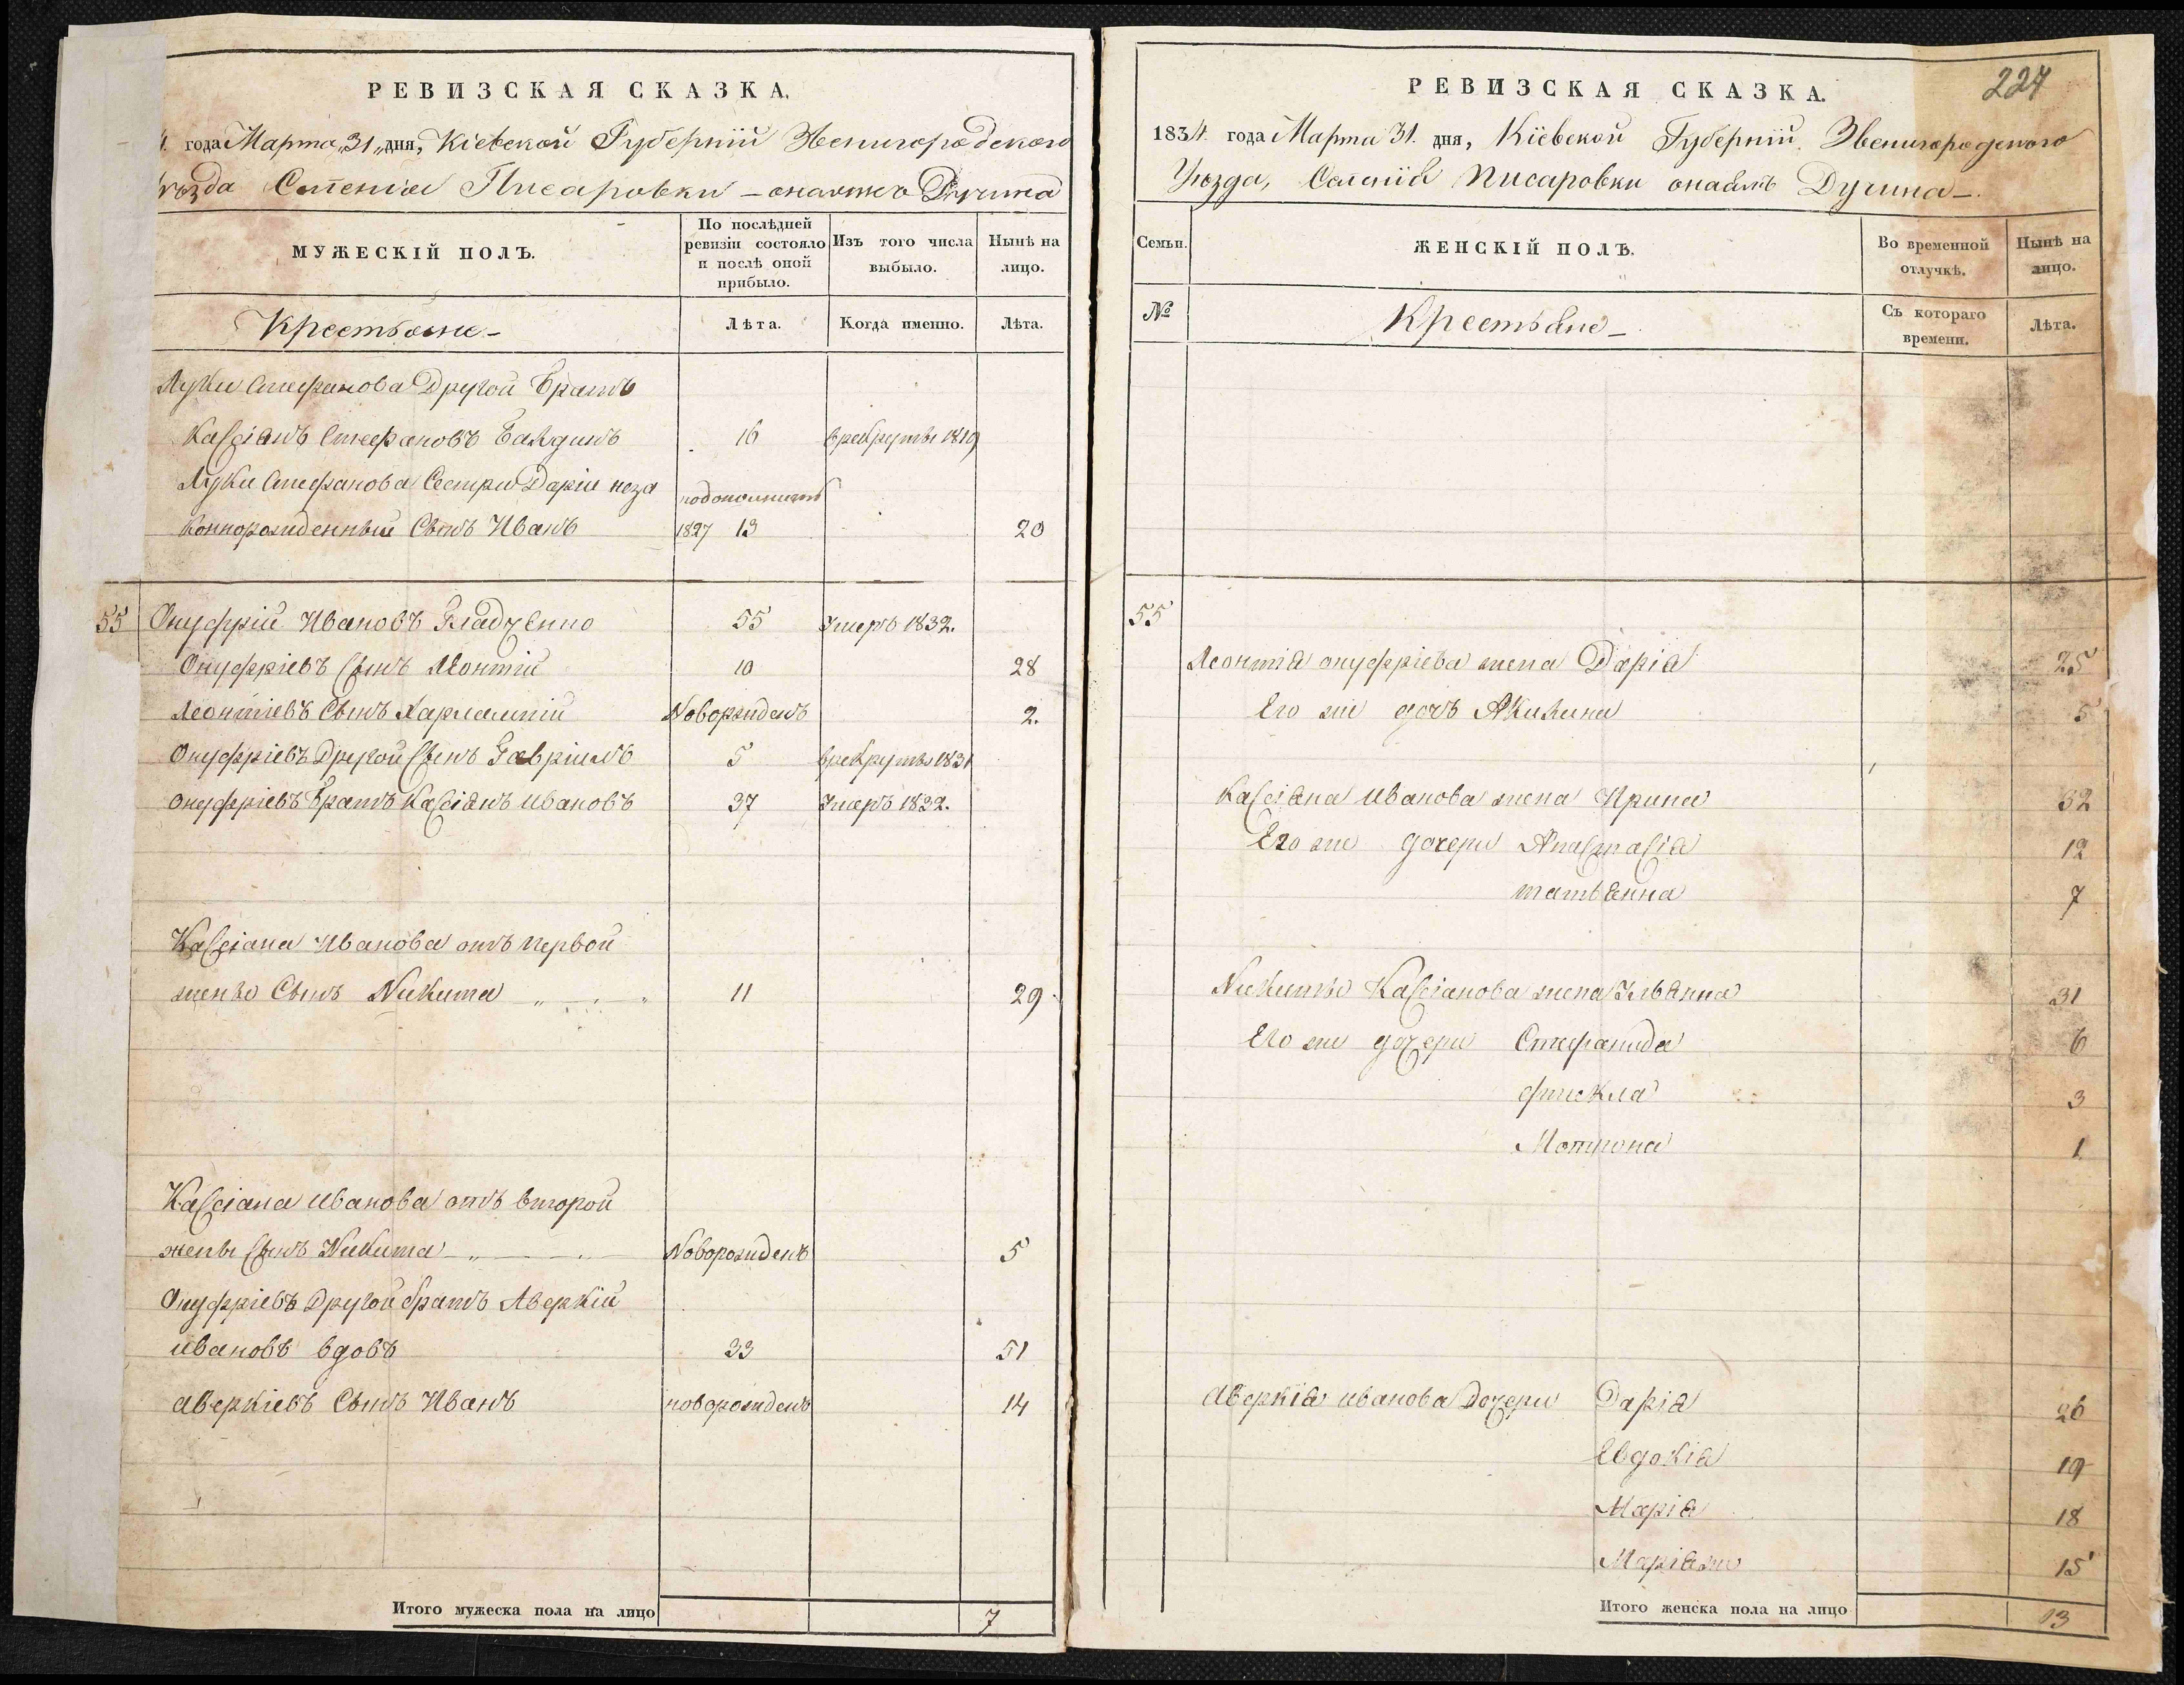 РЕВИЗСКАЯ СКАЗКА.
4. года Марта „31„ дня, Кіевской Губерніи Звенигородского
уѣзда Селенія Писаровки – онажъ Дучина
МУЖЕСКІЙ ПОЛЪ.
По послѣдней ревизіи состояло и послѣ оной прибыло.
Изъ того числа выбыло.
Нынѣ на лицо.
Крестьяне –
Лѣта.
Когда именно.
Лѣта.
Луки Стефанова Другой Братъ
Кассіянъ Стефановъ 16 врекруты 1819
Луки Стефанова Сестри Даріи неза
коннорожденный Сынъ Иванъ 1827 13 20
55 Онуфрій Ивановъ Гладченко 55 Умеръ 1832.
Онуфріевъ Сынъ Леонтій 10 28
Леонтіевъ Сынъ Харлампій Новорожденъ 2.
Онуфріевъ Другой Сынъ Гавріилъ 5 врекруты 1831
Онуфріевъ Братъ Кассіянъ Ивановъ 37 Умеръ 1832.
Кассіана Иванова отъ первой
жены Сынъ Никита „ „ 11 29
Кассіана Иванова отъ второй
жены Сынъ Никита „ Новорожденъ 5
Онуфріевъ Другой братъ Аверкій
Ивановъ вдовъ 33 51
Аверкіевъ Сынъ Иванъ новорожденъ 14
Итого мужеска пола на лицо 7
227
РЕВИЗСКАЯ СКАЗКА.
1834. года Марта 31. дня, Кіевской Губерніи, Звенигородского
Уѣзда, Селенія Писаровки онажъ Дучина –.
Семьи.
ЖЕНСКІЙ ПОЛЪ.
Во временной отлучкѣ.
Нынѣ на лицо.
№
Крестьяне –
Съ котораго времени.
Лѣта.
55
Леонтія онуфріева жена Дарія 25
Его же дочь Акилина 5
Кассіяна Иванова жена Ирина 32
Его же дочери Анастасія 12
татьянна 7
Никиты Кассіанова жена Ульянна 31
Его же дочери Стефанида 6
фтекла 3
Мотрона 1
Аверкія Иванова Дочери Дарія 26
Евдокія 19
Марія 18
Марія же 15
Итого женска пола на лицо 13